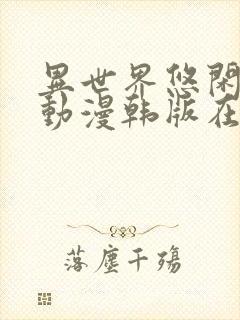 異世界悠閑
動漫韩版在
落塵千殤